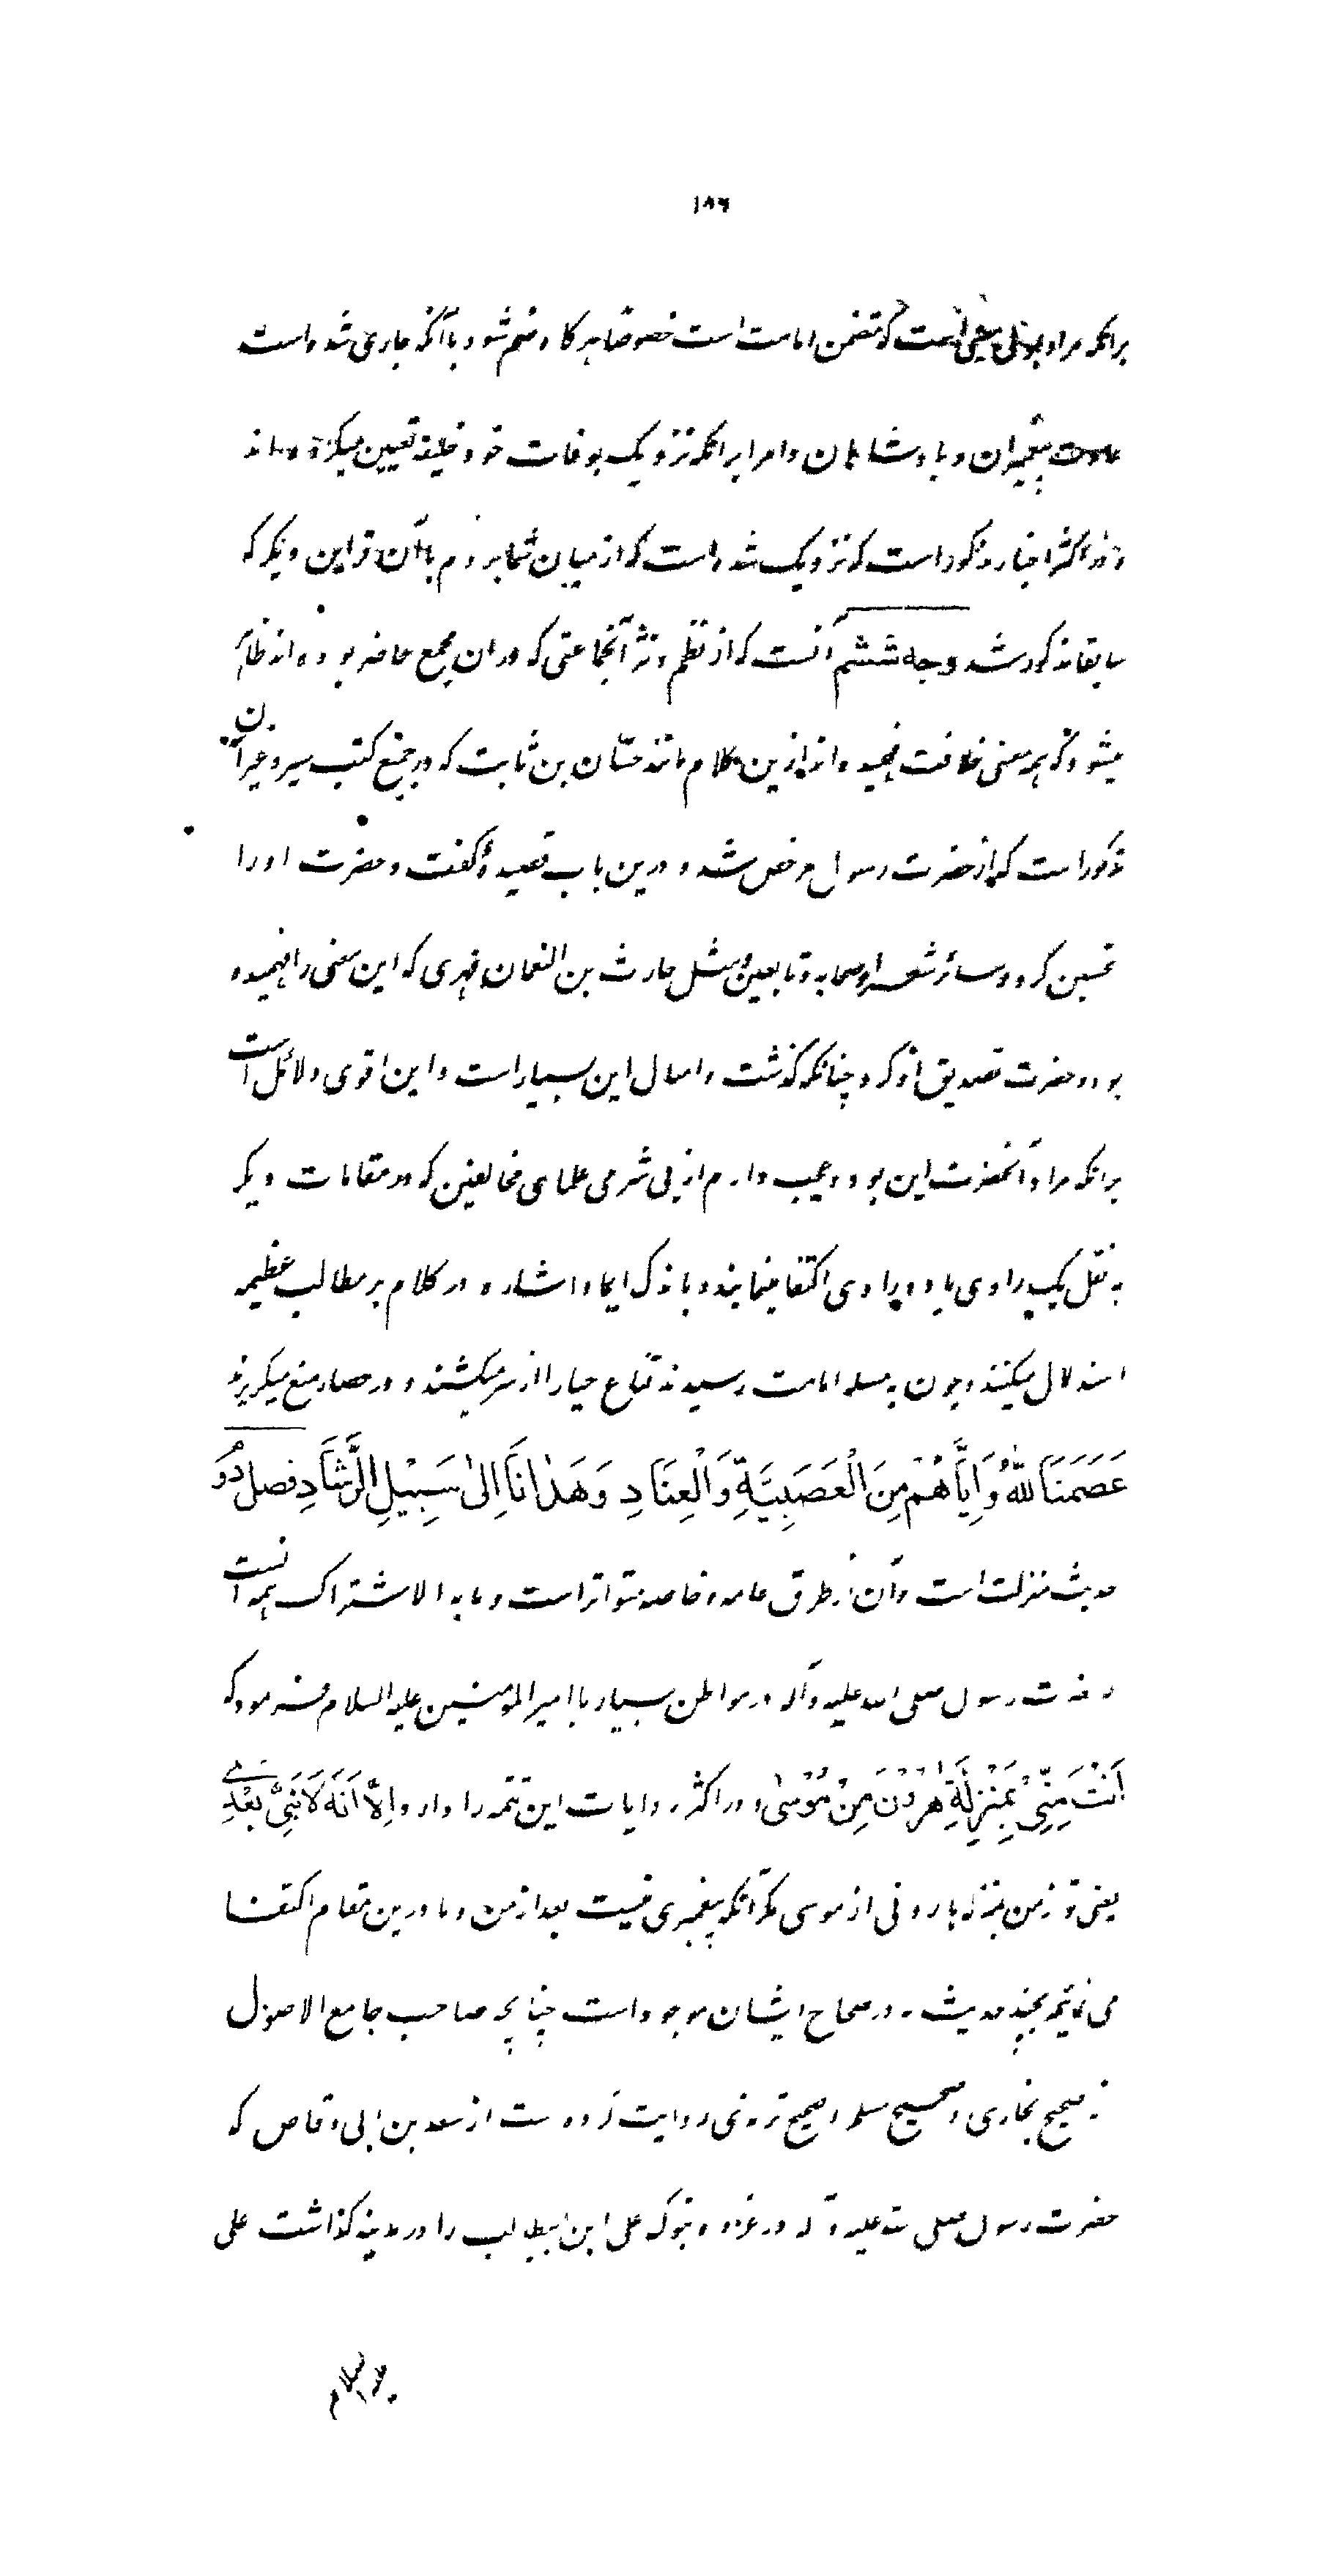 ۱۸۶
برانکه مراد بمولی معنی است که متضمن امامت است خصوصًا هرکاه منضم شود با آنکه جاری شده است
عادت پیغمبران و پادشاهان و امرا برانکه نزدیک بوفات خود خلیفه تعیین میکرده‌اند
و در اکثر اخبار مذکور است که نزدیک شده است که از میان شما بروم با آن قراین دیکر که
سابقا مذکور شد وجه ششم آنست که از نظم و نثر آنجماعتی که دران مجمع حاضر بوده‌اند ظاهر
میشود که همه معنی خلافت فهمیده‌اند ازین کلام مانند حسّان بن ثابت که در جمیع کتب سیر و غیر آن
مذکور است که از حضرت رسول مرخص شد و درین باب قصیدهٔ گفت و حضرت اورا
تحسین کرد و سائر شعرا و صحابه و تابعین و مثل حارث بن النعمان فهری که این معنی را فهمیده
بود و حضرت تصدیق او کرد چنانکه گذشت و امثال این بسیار است و این اقوی دلائل است
برانکه مراد آنحضرت این بود و عجب دارم از بی شرمی علمای مخالفین که در مقامات دیکر
به نقل یک راوی یا دو راوی اکتفا مینمایند و باندک ایما و اشاره در کلام بر مطالب عظیمه
استدلال میکنند و چون به مسله امامت رسیدند قناع حیا را از سر میکشند و در حصار منع میکریزند
عَصَمَنَا اللهُ وَاِیَّاهُمْ مِنَ الْعَصَبِیَّةِ وَالْعِنَادِ وَهَدَانَا اِلیٰ سَبِیْلِ الرَّشَادِ فصل دُوَ
حدیث منزلت است و آن از طرق عامه و خاصه متواتر است و مابه الاشتراک همه آنست
حضرت رسول صلی الله علیه و آله در مواطن بسیار با امیر المؤمنین علیه السلام فرمود که
اَنْتَ مِنِّیْ بِمَنْزِلَةِ هٰرُوْنَ مِنْ مُوْسٰی و در اکثر روایات این تتمه را دارد اِلَّا اَنَّهُ لَا نَبِیَّ بَعْدِیْ
یعنی تو از من بمنزله هارونی از موسی مکر آنکه پیغمبری نیست بعد از من و ما درین مقام اکتفا
می نمائیم بچند حدیث که در صحاح ایشان موجود است چنانچه صاحب جامع الاصول
از صحیح بخاری و صحیح مسلم و صحیح ترمذی روایت کرده است از سعد بن ابی وقاص که
حضرت رسول صلی الله علیه و آله در غزوه تبوک علی ابن ابیطالب را در مدینه گذاشت علی
علیه السلام